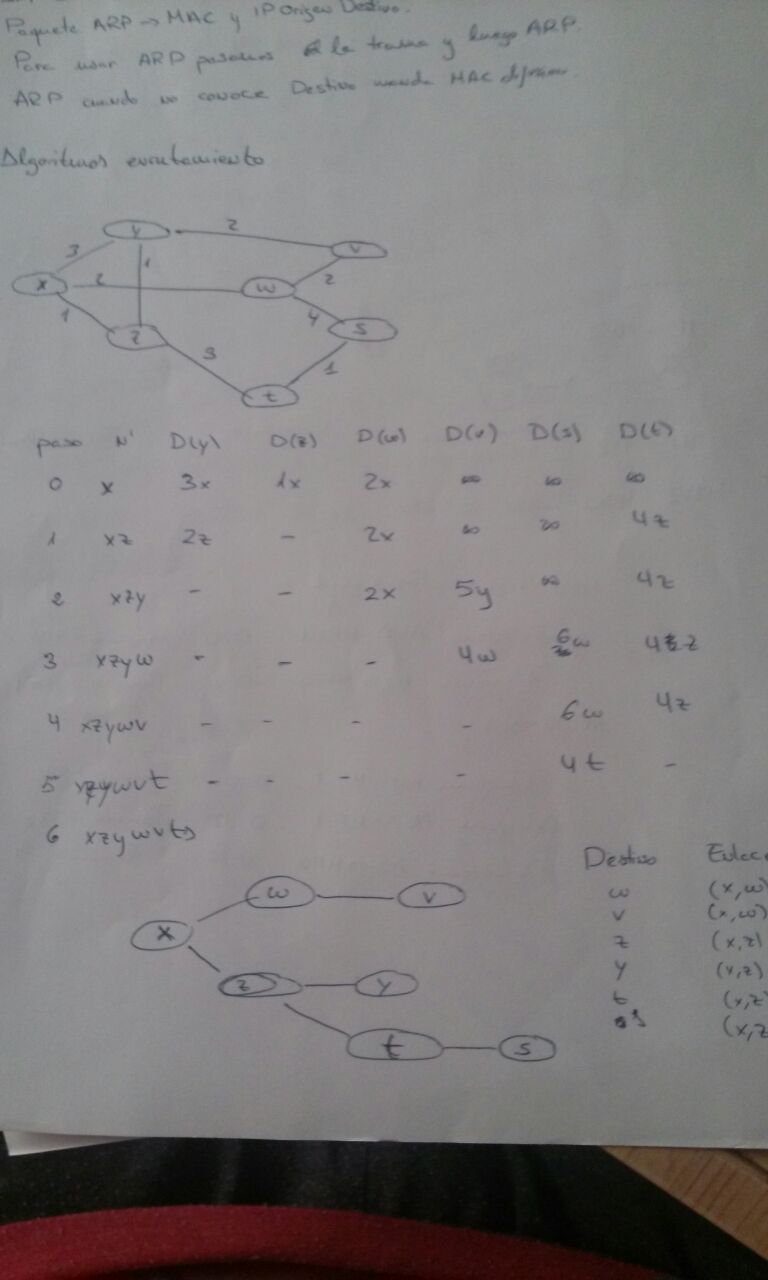 Paquete ARP → MAC y IP Origen Destino.
Para usar ARP pasamos a la trama y luego ARP.
ARP cuando no conoce Destino manda MAC
Algoritmos enrutamiento
y 2 v
3 1
x 2 w 2
1 z 4 s
3 1
t
paso N' D(y) D(z) D(w) D(v) D(s) D(t)
0 x 3x 1x 2x ∞ ∞ ∞
1 xz 2z - 2x ∞ ∞ 4z
2 xzy - - 2x 5y ∞ 4z
3 xzyw - - - 4w 6w 4z
4 xzywv - - - - 6w 4z
5 xzywvt - - - - 4t -
6 xzywvts
Destino Enlace
w (x,w)
v (x,w)
z (x,z)
y (x,z)
t (x,z)
s (x,z
w v
x
z y
t s